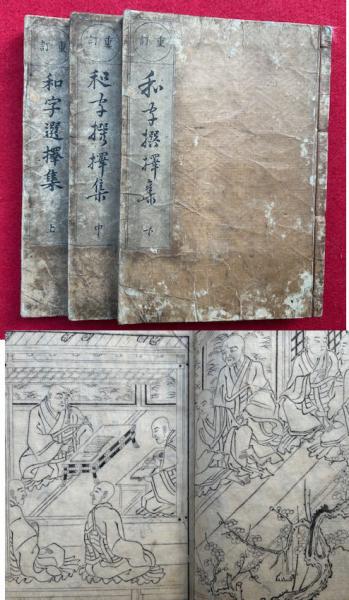 重訂
和字選擇集
上
重訂
和字撰擇集
中
重訂
和字撰擇集
下